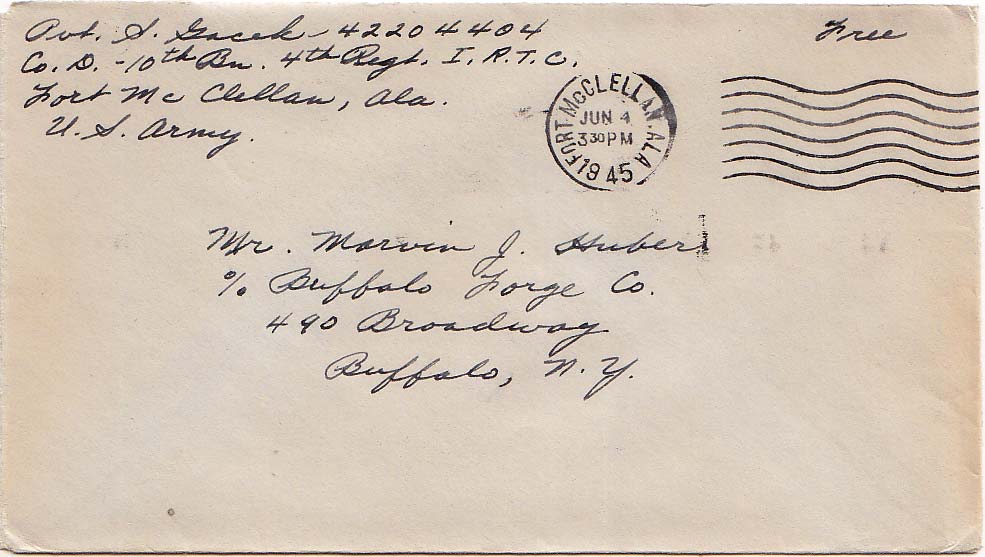 Pvt. S. Gacek - 42204404
Free
Co. D. - 10th Bn. 4th Regt. I. R. T. C.
Fort Mc Clellan, Ala.
U. S. Army.
FORT McCLELLAN, ALA
JUN 4
3 30 PM
1945
Mr. Marvin J. Huber
% Buffalo Forge Co.
490 Broadway
Buffalo, N. Y.